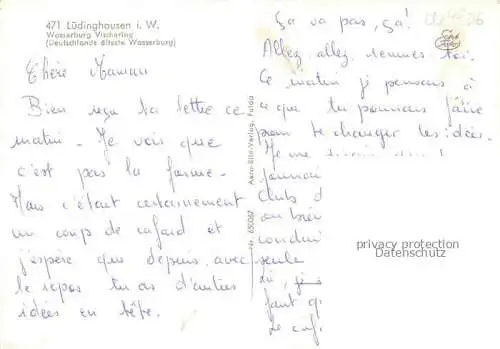 471 Lüdinghausen i. W.
Wasserburg Vischering
(Deutschlands älteste Wasserburg)
Chère Maman
Bien reçu ta lettre ce
matin - Je vois que
c'est pas la forme -
Mais c'était certainement
un coup de cafard et
j'espère que depuis, avec
le repos tu as d'autres
idées en tête.
Aero-Bild-Verlag, Fulda
Nr. 65087
Ça va pas, ça!
Allez, allez, remues toi.
Ce matin je pensais à
ce que tu pourrais faire
pour te changer les idées.
Je me
clubs d
ou bien
conduir
seule
faut q
Le caf
privacy protection
Datenschutz